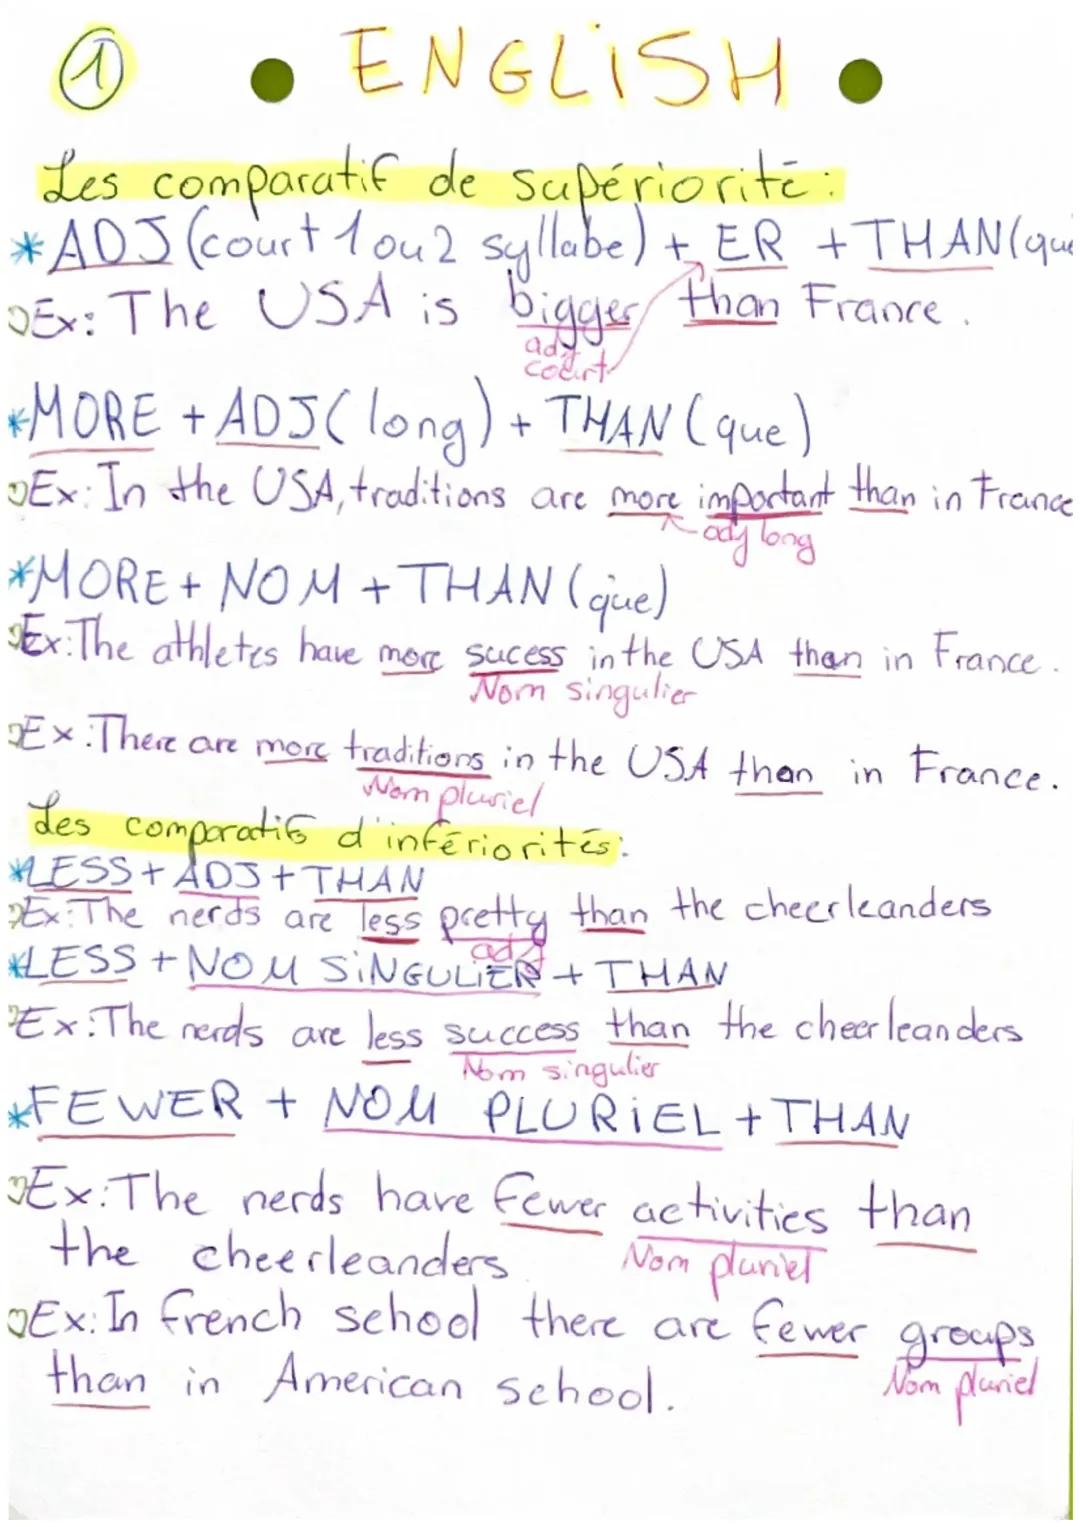 1 • ENGLISH •
Les comparatif de supériorité :
*ADJ (court 1 ou 2 syllabe) + ER + THAN (que
Ex: The USA is bigger than France.
adj
court
*MORE + ADJ (long) + THAN (que)
Ex: In the USA, traditions are more important than in France
adj long
*MORE + NOM + THAN (que)
Ex: The athletes have more sucess in the USA than in France.
Nom singulier
Ex: There are more traditions in the USA than in France.
Nom pluriel
Les comparatifs d'infériorités:
*LESS + ADJ + THAN
Ex: The nerds are less pretty than the cheerleanders
adj
*LESS + NOM SINGULIER + THAN
Ex: The nerds are less success than the cheerleanders
Nom singulier
*FEWER + NOM PLURIEL + THAN
Ex: The nerds have fewer activities than
the cheerleanders
Nom pluriel
Ex: In french school there are fewer groups
than in American school.
Nom pluriel